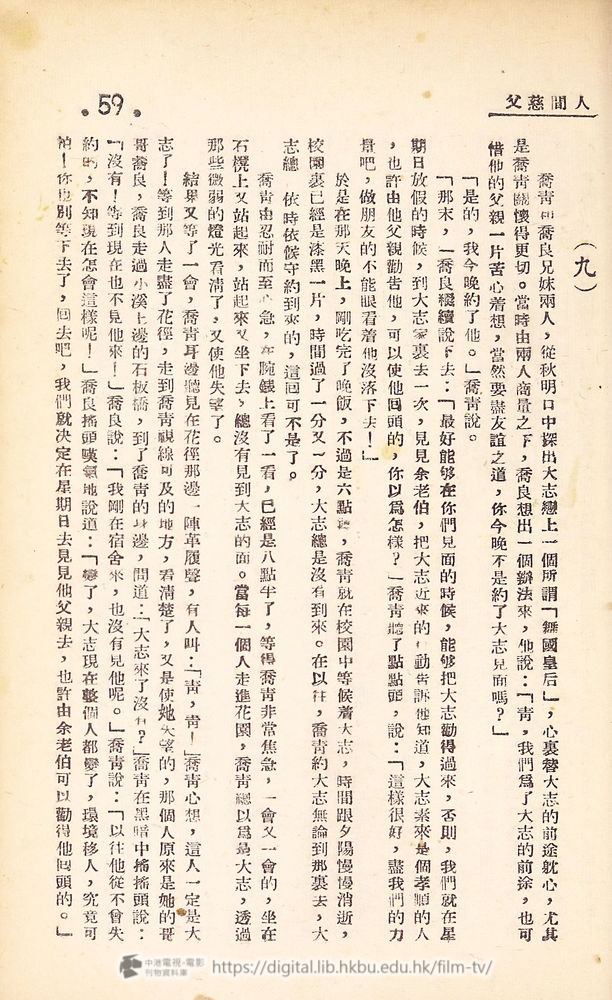 人間慈父
59
（九）
喬靑和喬良兄妹兩人，從秋明口中探出大志戀上一個所謂「舞國皇后」，心裏替大志的前途躭心，尤其
是喬靑關懷得更切。當時由兩人商量之下，喬良想出一個辦法來，他說：「靑，我們爲了大志的前途，也可
惜他的父親一片苦心着想，當然要盡友誼之道，你今晚不是約了大志見面嗎？」
「是的，我今晚約了他。」喬靑說。
「那末，」喬良繼續說下去：「最好能够在你們見面的時候，能够把大志勸得過來，否則，我們就在星
期日放假的時候，到大志家裏去一次，見見余老伯，把大志近來的行動告訴他知道，大志素來是個孝順的人
，也許由他父親勸告他，可以使他回頭的，你以爲怎樣？」喬靑聽了點點頭，說：「這樣很好，盡我們的力
量吧，做朋友的不能眼看着他沒落下去！」
於是在那天晚上，剛吃完了晚飯，不過是六點鐘，喬靑就在校園中等候着大志，時間跟夕陽慢慢消逝，
校園裏已經是漆黑一片，時間過了一分又一分，大志總是沒有到來。在以往，喬靑約大志無論到那裏去，大
志總 依時依候守約到來的，這回可不是了。
喬靑由忍耐而至心急，在腕錶上看了一看，已經是八點半了，等得喬靑非常焦急，一會又一會的，坐在
石櫈上又站起來，站起來又坐下去，總沒有見到大志的面。當每一個人走進花園，喬靑總以爲是大志，透過
那些微弱的燈光看淸了，又使他失望了。
結果又等了一會，喬靑耳邊聽見在花徑那邊一陣革履聲，有人叫：「靑，靑！」喬靑心想，這人一定是大
志了！等到那人走盡了花徑，走到喬靑視線可及的地方，看淸楚了，又是使她失望的，那個人原來是她的哥
哥喬良，喬良走過小溪上邊的石板橋，到了喬靑的身邊，問道：「大志來了沒有？」喬靑在黑暗中搖搖頭說：
「沒有！等到現在也不見他來！」喬良說：「我剛在宿舍來，也沒有見他呢。」喬靑說：「以往他從不曾失
約的，不知現在怎會這樣呢！」喬良搖頭嘆氣地說道：「變了，大志現在整個人都變了，環境移人，究竟可
怕！你也別等下去了，回去吧，我們就决定在星期日去見見他父親去，也許由余老伯可以勸得他回頭的。」
中港電視·電影
刊物資料庫
https://digital.lib.hkbu.edu.hk/film-tv/